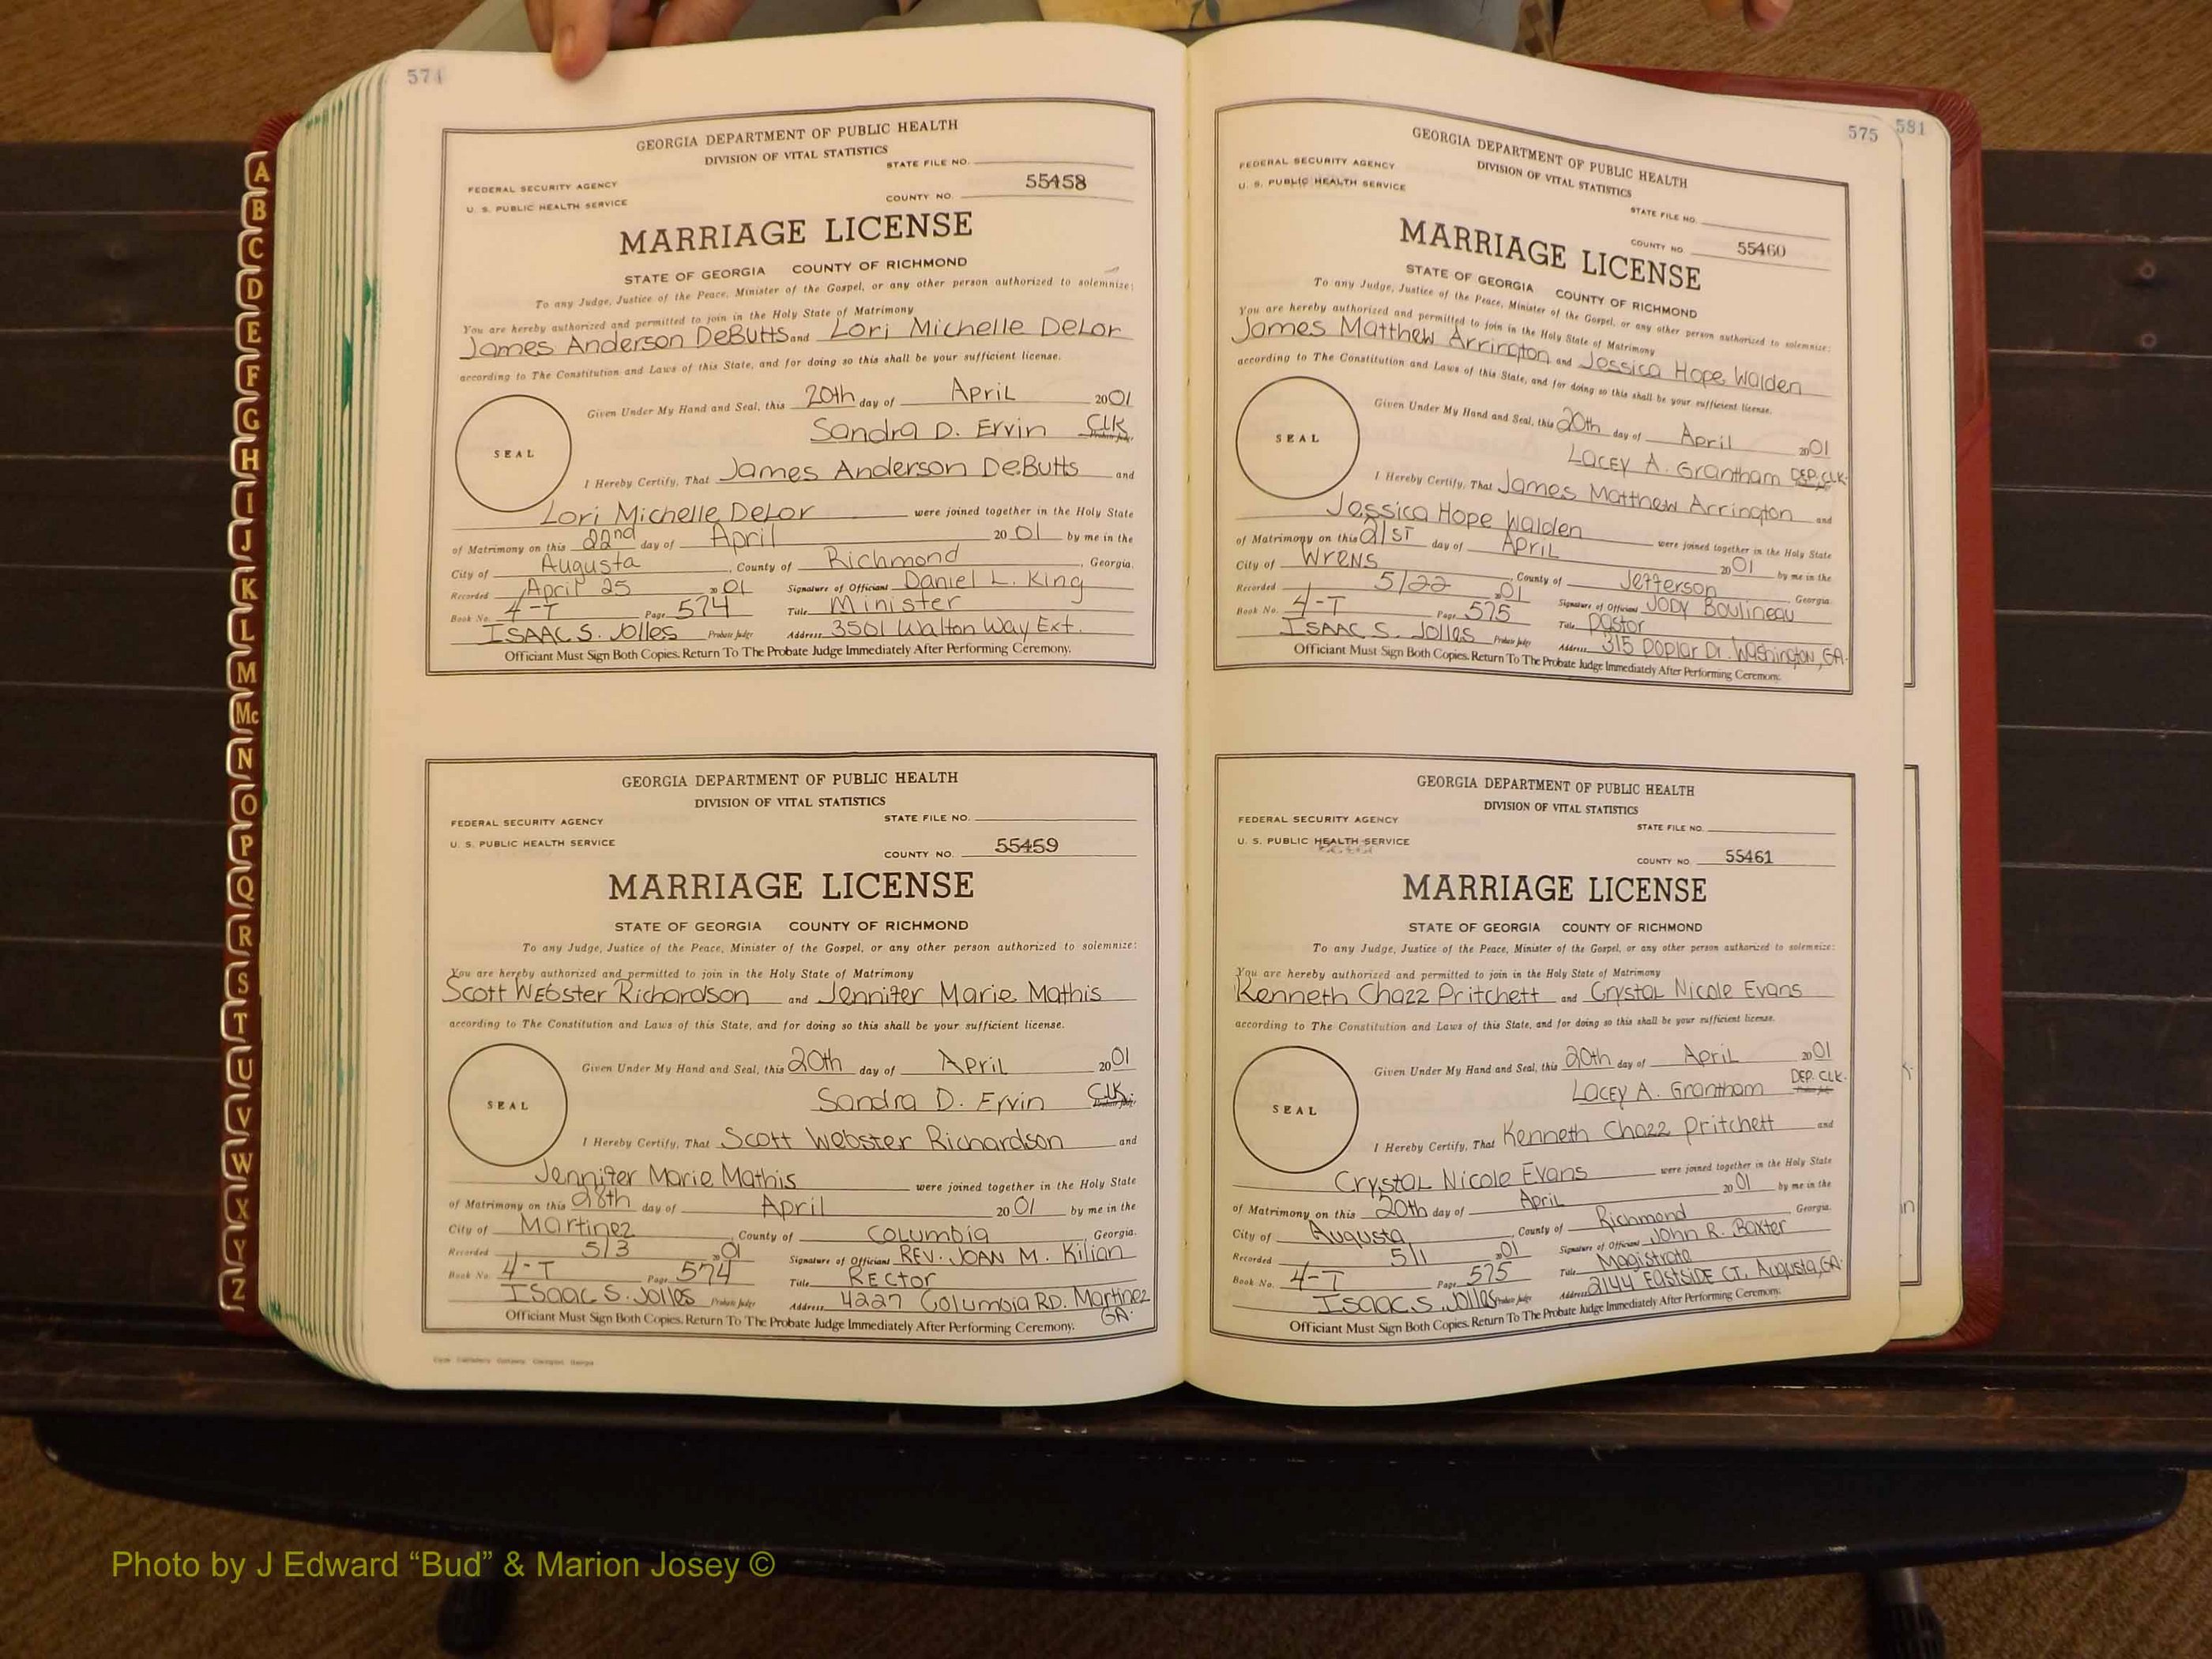 574
GEORGIA DEPARTMENT OF PUBLIC HEALTH
DIVISION OF VITAL STATISTICS
STATE FILE NO.
FEDERAL SECURITY AGENCY
U. S. PUBLIC HEALTH SERVICE
COUNTY NO. 55458
MARRIAGE LICENSE
STATE OF GEORGIA COUNTY OF RICHMOND
To any Judge, Justice of the Peace, Minister of the Gospel, or any other person authorized to solemnize:
You are hereby authorized and permitted to join in the Holy State of Matrimony
James Anderson DeButts and Lori Michelle DeLor
according to The Constitution and Laws of this State, and for doing so this shall be your sufficient license.
Given Under My Hand and Seal, this 20th day of April 2001
Sandra D. Ervin Clk
SEAL
I Hereby Certify, That James Anderson DeButts and
Lori Michelle DeLor were joined together in the Holy State
of Matrimony on this 22nd day of April 2001 by me in the
City of Augusta, County of Richmond, Georgia.
Recorded April 25 2001 Signature of Officiant Daniel L. King
Book No. 4-T Page 574 Title Minister
Isaac S. Jolles Probate Judge Address 3501 Walton Way Ext.
Officiant Must Sign Both Copies. Return To The Probate Judge Immediately After Performing Ceremony.
GEORGIA DEPARTMENT OF PUBLIC HEALTH
DIVISION OF VITAL STATISTICS
STATE FILE NO.
FEDERAL SECURITY AGENCY
U. S. PUBLIC HEALTH SERVICE
COUNTY NO. 55459
MARRIAGE LICENSE
STATE OF GEORGIA COUNTY OF RICHMOND
To any Judge, Justice of the Peace, Minister of the Gospel, or any other person authorized to solemnize:
You are hereby authorized and permitted to join in the Holy State of Matrimony
Scott Webster Richardson and Jennifer Marie Mathis
according to The Constitution and Laws of this State, and for doing so this shall be your sufficient license.
Given Under My Hand and Seal, this 20th day of April 2001
Sandra D. Ervin Clk.
SEAL
I Hereby Certify, That Scott Webster Richardson and
Jennifer Marie Mathis were joined together in the Holy State
of Matrimony on this 28th day of April 2001 by me in the
City of Martinez, County of Columbia, Georgia.
Recorded 5/3 2001 Signature of Officiant Rev. Joan M. Kilian
Book No. 4-T Page 574 Title Rector
Isaac S. Jolles Probate Judge Address 4227 Columbia RD. Martinez GA.
Officiant Must Sign Both Copies. Return To The Probate Judge Immediately After Performing Ceremony.
575 581
GEORGIA DEPARTMENT OF PUBLIC HEALTH
DIVISION OF VITAL STATISTICS
FEDERAL SECURITY AGENCY
U. S. PUBLIC HEALTH SERVICE
STATE FILE NO.
COUNTY NO. 55460
MARRIAGE LICENSE
STATE OF GEORGIA COUNTY OF RICHMOND
To any Judge, Justice of the Peace, Minister of the Gospel, or any other person authorized to solemnize:
You are hereby authorized and permitted to join in the Holy State of Matrimony
James Matthew Arrington and Jessica Hope Walden
according to The Constitution and Laws of this State, and for doing so this shall be your sufficient license.
Given Under My Hand and Seal, this 20th day of April 2001
Lacey A. Grantham DEP. CLK.
SEAL
I Hereby Certify, That James Matthew Arrington and
Jessica Hope Walden were joined together in the Holy State
of Matrimony on this 21st day of April 2001 by me in the
City of Wrens, County of Jefferson Georgia.
Recorded 5/22 2001 Signature of Officiant Jody Boulineau
Book No. 4-T Page 575 Title Pastor
Isaac S. Jolles Probate Judge Address 315 Poplar Dr. Washington, GA.
Officiant Must Sign Both Copies. Return To The Probate Judge Immediately After Performing Ceremony.
GEORGIA DEPARTMENT OF PUBLIC HEALTH
DIVISION OF VITAL STATISTICS
FEDERAL SECURITY AGENCY
STATE FILE NO.
U. S. PUBLIC HEALTH SERVICE
COUNTY NO. 55461
MARRIAGE LICENSE
STATE OF GEORGIA COUNTY OF RICHMOND
To any Judge, Justice of the Peace, Minister of the Gospel, or any other person authorized to solemnize:
You are hereby authorized and permitted to join in the Holy State of Matrimony
Kenneth Chazz Pritchett and Crystal Nicole Evans
according to The Constitution and Laws of this State, and for doing so this shall be your sufficient license.
Given Under My Hand and Seal, this 20th day of April 2001
Lacey A. Grantham DEP. CLK.
SEAL
I Hereby Certify, That Kenneth Chazz Pritchett and
Crystal Nicole Evans were joined together in the Holy State
of Matrimony on this 20th day of April 2001 by me in the
City of Augusta, County of Richmond Georgia.
Recorded 5/1 2001 Signature of Officiant John R. Baxter
Book No. 4-T Page 575 Title Magistrate
Isaac S. Jolles Probate Judge Address 2144 Eastside CT. Augusta, GA.
Officiant Must Sign Both Copies. Return To The Probate Judge Immediately After Performing Ceremony.
A
B
C
D
E
F
G
H
I
J
K
L
M
Mc
N
O
P
Q
R
S
T
U
V
W
X
Y
Z
Photo by J Edward “Bud” & Marion Josey ©